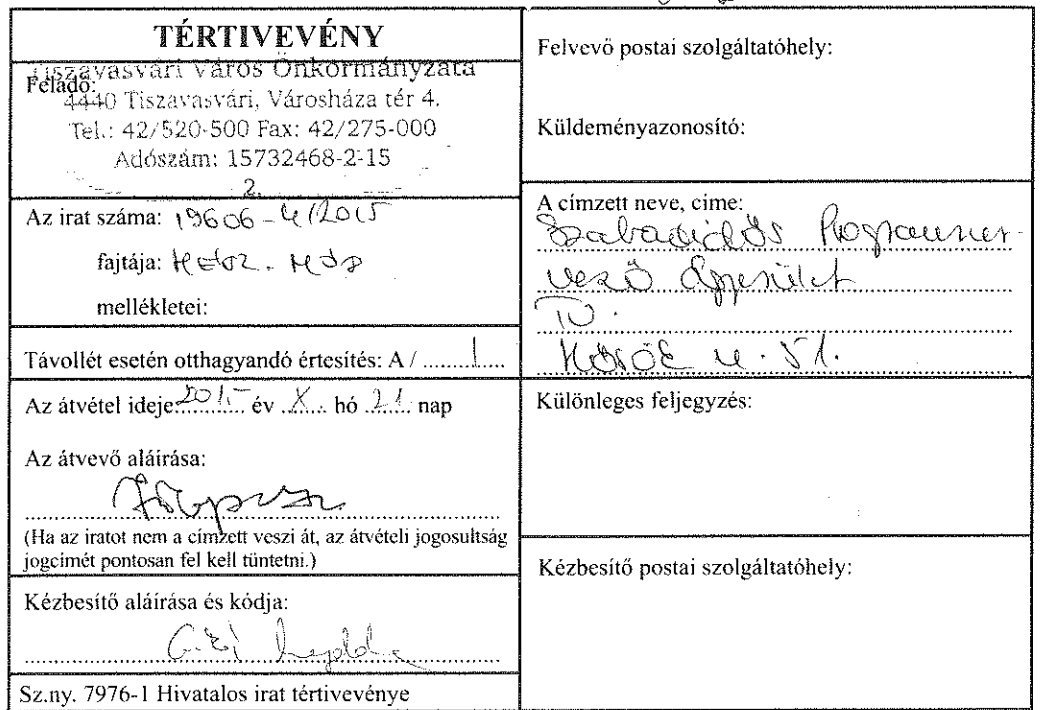 TÉRTIVEVÉNY
Tiszavasvári Város Önkormányzata
Feladó:
4440 Tiszavasvári, Városháza tér 4.
Tel.: 42/520-500 Fax: 42/275-000
Adószám: 15732468-2-15
2.
Az irat száma: 19606-4/2015
fajtája:
mellékletei:
Távollét esetén otthagyandó értesítés: A / ......1....
Az átvétel ideje: 2015 év X. hó 21. nap
Az átvevő aláírása:
(Ha az iratot nem a címzett veszi át, az átvételi jogosultság
jogcímét pontosan fel kell tüntetni.)
Kézbesítő aláírása és kódja:
Sz.ny. 7976-1 Hivatalos irat tértivevénye
Felvevő postai szolgáltatóhely:
Küldeményazonosító:
A címzett neve, címe:
Szabadidős Programszer-
vező Egyesület
TV.
Hősök u. 51.
Különleges feljegyzés:
Kézbesítő postai szolgáltatóhely: